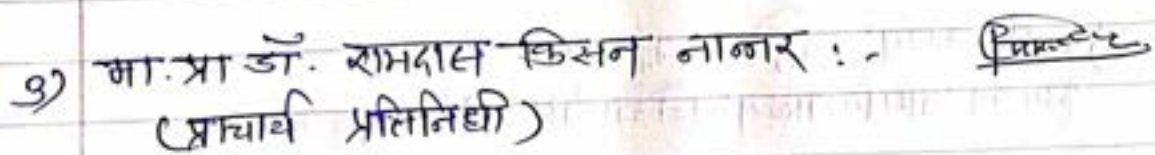 ३) मा.प्रा डॉ. रामदास किसन नान्नर :-
(प्राचार्य प्रतिनिधी)